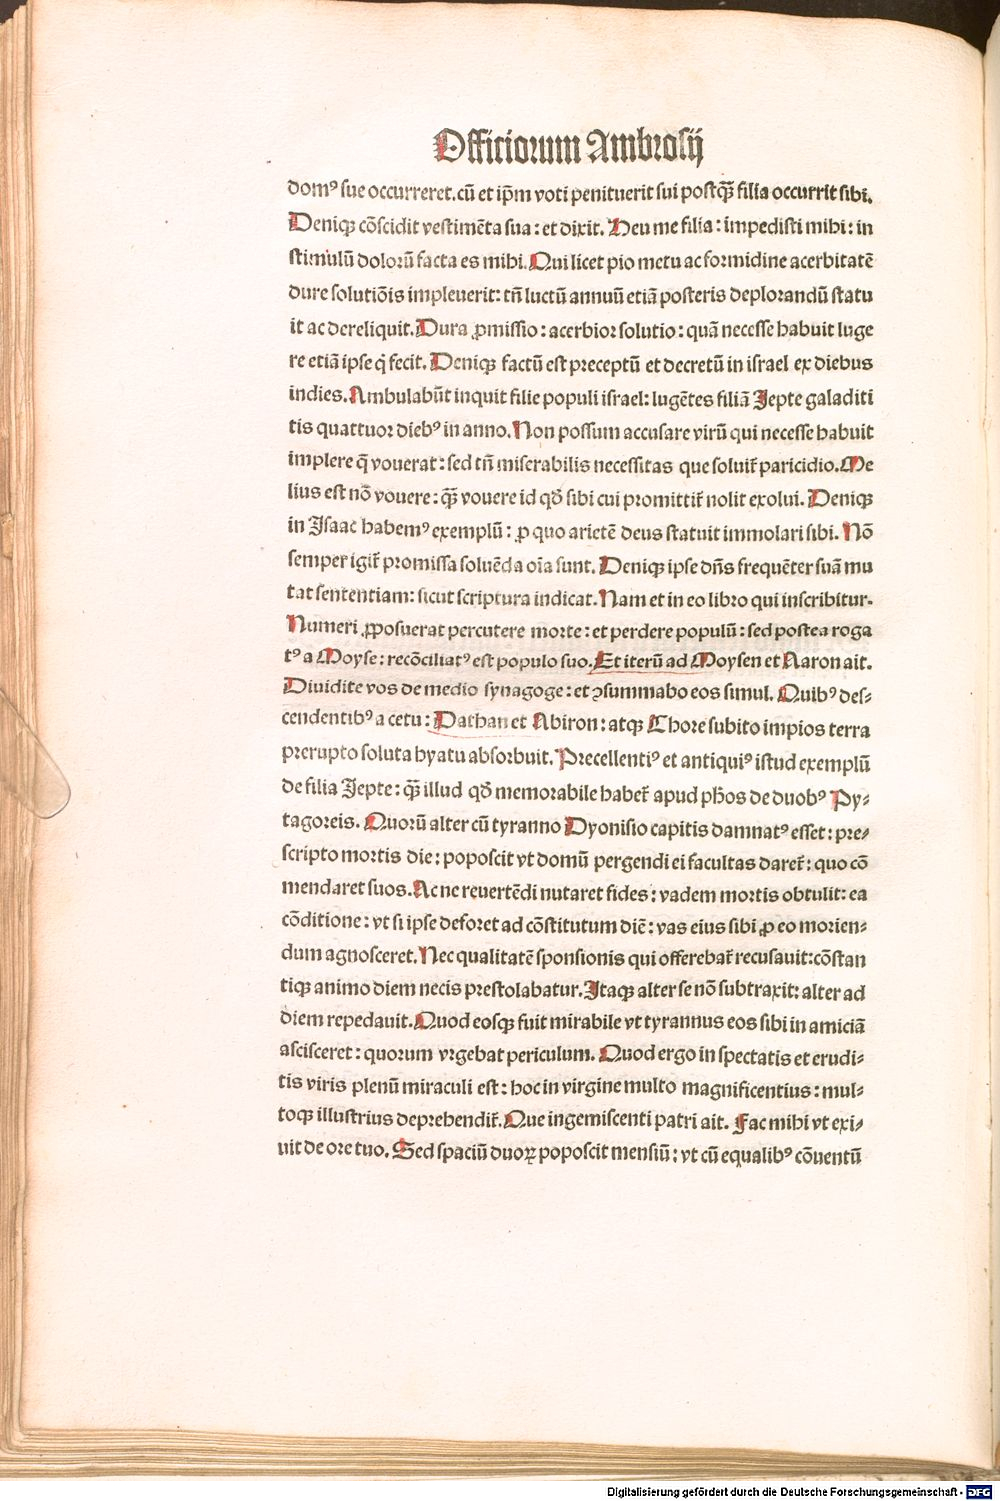 Officiorum Ambrosij
domꝰ sue occurreret. cū et ip̄m voti penituerit sui postq̄ȝ filia occurrit sibi.
Deniqȝ cōscidit vestimēta sua: et dixit. Heu me filia: impedisti mihi: in
stimulū dolorū facta es mihi. Qui licet pio metu ac formidine acerbitatē
dure solutiōis impleuerit: tn̄ luctū annuū etiā posteris deplorandū statu
it ac dereliquit. Dura ꝓmissio: acerbior solutio: quā necesse habuit luge
re etiā ipse q̇ fecit. Deniqȝ factū est preceptū et decretū in israel ex diebus
indies. Ambulabūt inquit filie populi israel: lugētes filiā Jepte galaditi
tis quattuor diebꝰ in anno. Non possum accusare virū qui necesse habuit
implere q̄ vouerat: sed tn̄ miserabilis necessitas que soluit᷑ paricidio. Me
lius est nō vouere: q̄ȝ vouere id qd̄ sibi cui promittit᷑ nolit exolui. Deniqȝ
in Isaac habemꝰ exemplū: ꝓ quo arietē deus statuit immolari sibi. Nō
semper igit᷑ promissa soluēda oīa sunt. Deniqȝ ipse dn̄s frequēter suā mu
tat sententiam: sicut scriptura indicat. Nam et in eo libro qui inscribitur.
Numeri ꝓposuerat percutere morte: et perdere populū: sed postea roga
tꝰ a Moyse: recōciliatꝰ est populo suo. Et iterū ad Moysen et Aaron ait.
Diuidite vos de medio synagoge: et ꝯsummabo eos simul. Quibꝰ des-
cendentibꝰ a cetu: Dathan et Abiron: atqȝ Chore subito impios terra
prerupto soluta hyatu absorbuit. Precellentiꝰ et antiquiꝰ istud exemplū
de filia Jepte: q̄ȝ illud qd̄ memorabile habet᷑ apud ph̄os de duobꝰ Py-
tagoreis. Quorū alter cū tyranno Dyonisio capitis damnatꝰ esset: pre-
scripto mortis die: poposcit vt domū pergendi ei facultas daret᷑: quo cō
mendaret suos. Ac ne reuertēdi nutaret fides: vadem mortis obtulit: ea
cōditione: vt si ipse deforet ad cōstitutum diē: vas eius sibi ꝓ eo morien-
dum agnosceret. Nec qualitatē sponsionis qui offerebat᷑ recusauit: cōstan
tiqȝ animo diem necis prestolabatur. Itaqȝ alter se nō subtraxit: alter ad
diem repedauit. Quod eosqȝ fuit mirabile vt tyrannus eos sibi in amiciā
ascisceret: quorum vrgebat periculum. Quod ergo in spectatis et erudi-
tis viris plenū miraculi est: hoc in virgine multo magnificentius: mul-
toqȝ illustrius deprehendit᷑. Que ingemiscenti patri ait. Fac mihi vt exi-
uit de ore tuo. Sed spaciū duoꝝ poposcit mensiū: vt cū equalibꝰ cōuentū
Digitalisierung gefördert durch die Deutsche Forschungsgemeinschaft - DFG